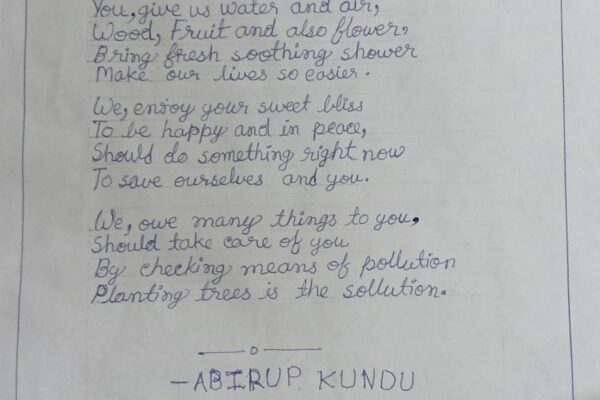 You, give us water and air,
Wood, Fruit and also flower,
Bring fresh soothing shower
Make our lives so easier.
We, enjoy your sweet bliss
To be happy and in peace,
Should do something right now
To save ourselves and you.
We, owe many things to you,
Should take care of you
By checking means of pollution
Planting trees is the sollution.
-ABIRUP KUNDU